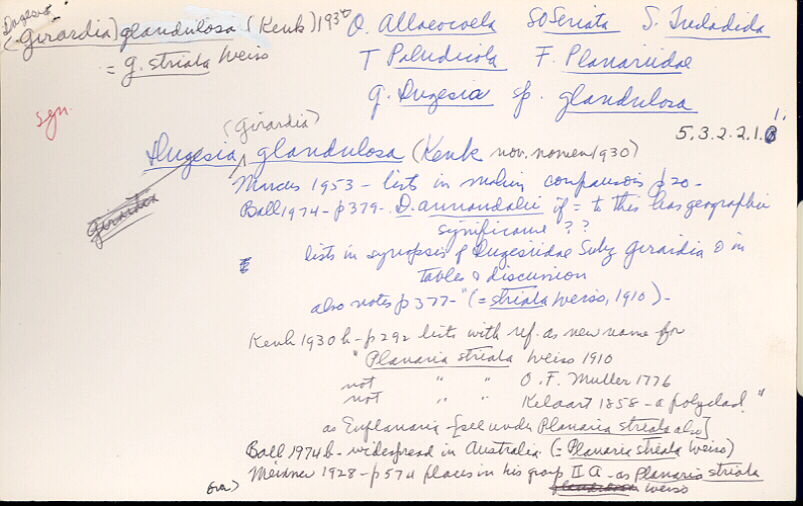 Dugesia
(Girardia) glandulosa (Kenk) 1930
= g. striata Weiss
O. Alloeocoela SO Seriata S. Tricladida
T Paludicola F. Planariidae
g. Dugesia sp. glandulosa
syn.
5.3.2.2.1.
(Girardia)
Dugesia glandulosa (Kenk nov. nomen 1930)
Marcus 1953 - lists in making comparisons p20-
Ball 1974 - p379- D. annandalei if = to this has geographic
significance ??
Girardia
lists in synopsis of Dugesiidae Subg Girardia & in
tables & discussion
also notes p 377- "(= striata Weiss, 1910)-
Kenk 1930 b - p292 lists with ref. as new name for
"Planaria striata Weiss 1910
not " " O.F. Muller 1776
not " " Kelaart 1858 - a polyclad"
as Euplanaria - [see under Planaria striata also]
Ball 1974 b - widespread in Australia (= Planaria striata Weiss)
Meixner 1928 - p 574 places in his group II A - as Planaria striata
Weiss